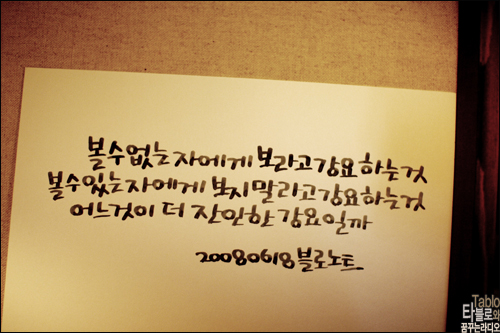 볼수없는자에게 보라고강요하는것
볼수있는자에게 보지말라고강요하는것
어느것이 더 잔인한 강요일까
20080618 블로노트
Tablo
타블로와
꿈꾸는라디오